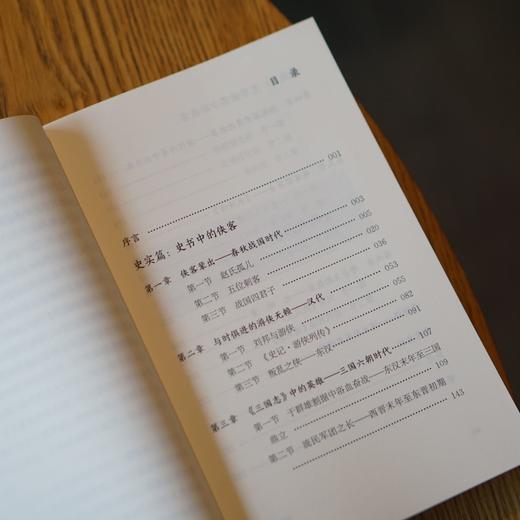 目 录
序言 001
史实篇：史书中的侠客
第一章 侠客辈出——春秋战国时代 003
第一节 赵氏孤儿 005
第二节 五位刺客 020
第三节 战国四君子 036
第二章 与时俱进的游侠无赖——汉代 053
第一节 刘邦与游侠 055
第二节 《史记·游侠列传》 082
第三节 叛乱之侠——东汉 091
第三章 《三国志》中的英雄——三国六朝时代 107
第一节 于群雄割据中浴血奋战——东汉末年至三国
鼎立 109
第二节 流民军团之长——西晋末年至东晋初期 143